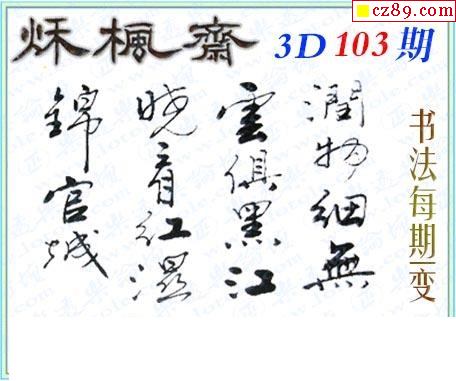 cz89.com
秌楓齋 3D 103 期
潤物細無
雲俱黑江
曉看紅濕
錦官城
书法每期一变